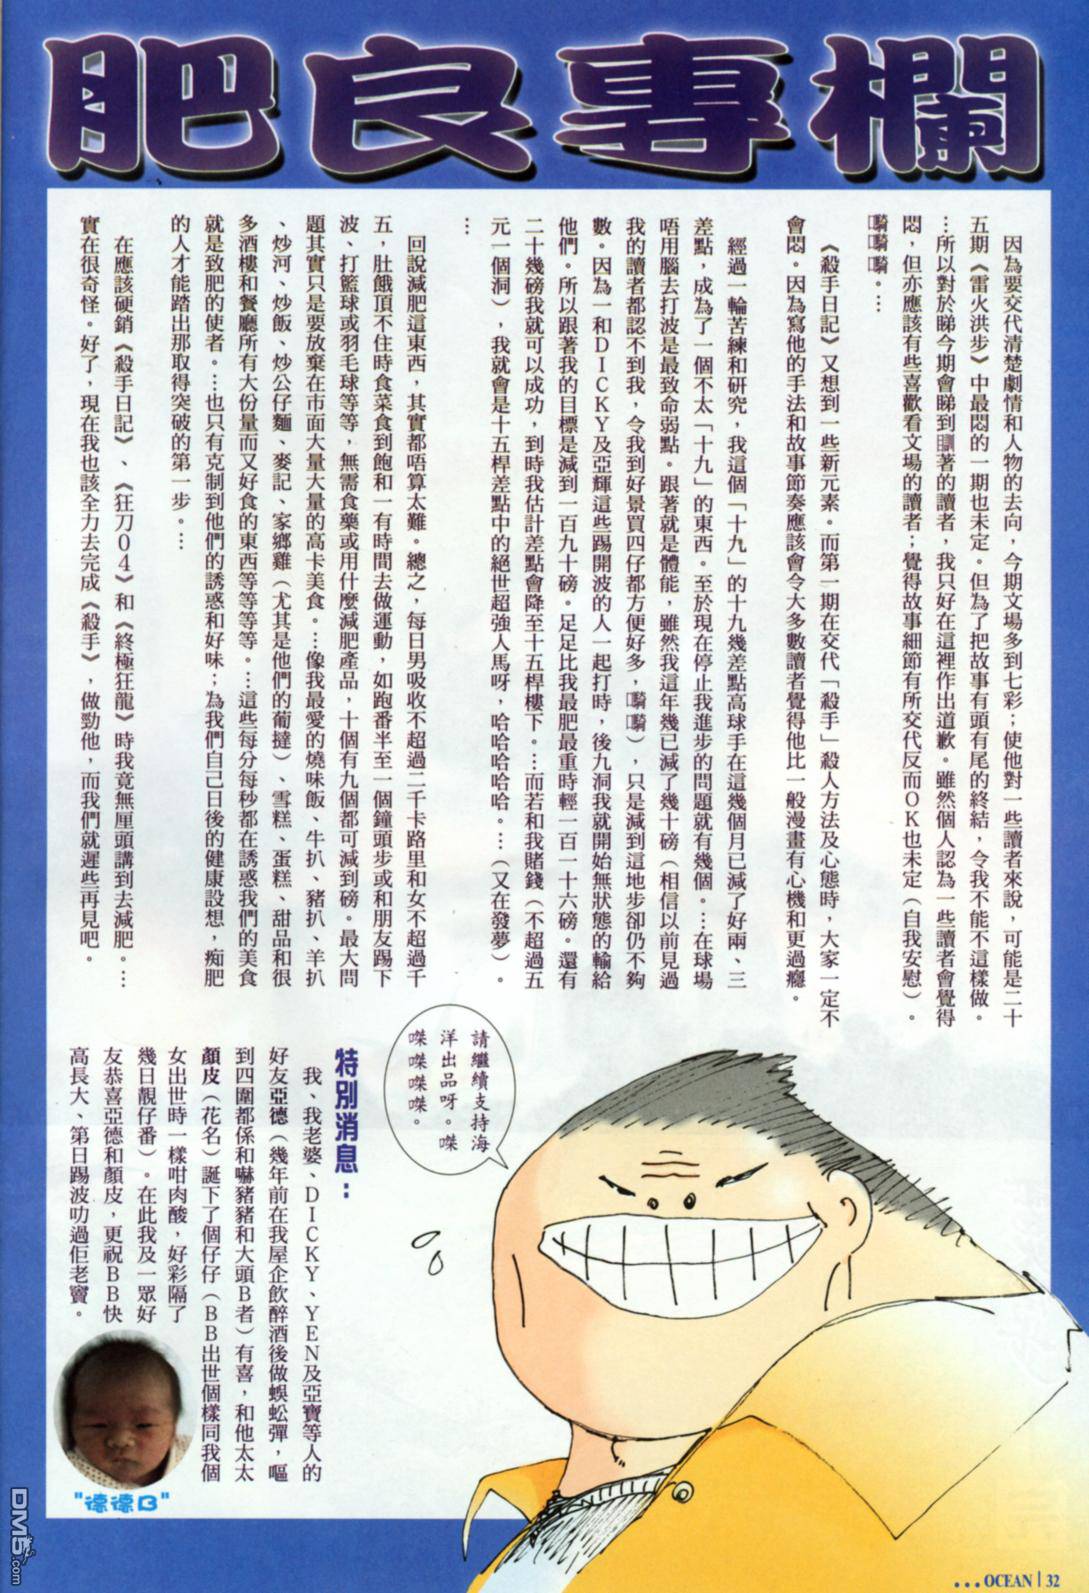 肥良專欄
因為要交代清楚劇情和人物的去向，今期文場多到七彩；使他對一些讀者來說，可能是二十
五期《雷火洪步》中最悶的一期也未定。但為了把故事有頭有尾的終結，令我不能不這樣做。
…所以對於睇今期會睇到瞓著的讀者，我只好在這裡作出道歉。雖然個人認為一些讀者會覺得
悶，但亦應該有些喜歡看文場的讀者；覺得故事細節有所交代反而ＯＫ也未定（自我安慰）。
騎騎騎。…
《殺手日記》又想到一些新元素。而第一期在交代「殺手」殺人方法及心態時，大家一定不
會悶。因為寫他的手法和故事節奏應該會令大多數讀者覺得他比一般漫畫有心機和更過癮。
經過一輪苦練和研究，我這個「十九」的十九幾差點高球手在這幾個月已減了好兩、三
差點，成為了一個不太「十九」的東西。至於現在停止我進步的問題就有幾個。…在球場
唔用腦去打波是最致命弱點。跟著就是體能，雖然我這年幾已減了幾十磅（相信以前見過
我的讀者都認不到我，令我到好景買四仔都方便好多，騎騎），只是減到這地步卻仍不夠
數。因為一和ＤＩＣＫＹ及亞輝這些踢開波的人一起打時，後九洞我就開始無狀態的輸給
他們。所以跟著我的目標是減到一百九十磅。足足比我最肥最重時輕一百一十六磅。還有
二十幾磅我就可以成功，到時我估計差點會降至十五桿樓下。…而若和我賭錢（不超過五
元一個洞），我就會是十五桿差點中的絕世超強人馬呀，哈哈哈哈哈。…（又在發夢）。
…
回說減肥這東西，其實都唔算太難。總之，每日男吸收不超過二千卡路里和女不超過千
五，肚餓頂不住時食菜食到飽和一有時間去做運動，如跑番半至一個鐘頭步或和朋友踢下
波、打籃球或羽毛球等等，無需食藥或用什麼減肥產品，十個有九個都可減到磅。最大問
題其實只是要放棄在市面大量大量的高卡美食。…像我最愛的燒味飯、牛扒、豬扒、羊扒
、炒河、炒飯、炒公仔麵、麥記、家鄉雞（尤其是他們的葡撻）、雪糕、蛋糕、甜品和很
多酒樓和餐廳所有大份量而又好食的東西等等等等。…這些每分每秒都在誘惑我們的美食
就是致肥的使者。…也只有克制到他們的誘惑和好味；為我們自己日後的健康設想，痴肥
的人才能踏出那取得突破的第一步。…
在應該硬銷《殺手日記》、《狂刀０４》和《終極狂龍》時我竟無厘頭講到去減肥。…
實在很奇怪。好了，現在我也該全力去完成《殺手》，做勁他，而我們就遲些再見吧。
請繼續支持海
洋出品呀。㗎
㗎㗎㗎㗎。
特別消息：
我、我老婆、ＤＩＣＫＹ、ＹＥＮ及亞寶等人的
好友亞德（幾年前在我屋企飲醉酒後做蜈蚣彈，嘔
到四圍都係和嚇豬豬和大頭Ｂ者）有喜，和他太太
顏皮（花名）誕下了個仔仔（ＢＢ出世個樣同我個
女出世時一樣咁肉酸，好彩隔了
幾日靚仔番）。在此我及一眾好
友恭喜亞德和顏皮，更祝ＢＢ快
高長大、第日踢波叻過佢老竇。
"德德B"
DM5.com
...OCEAN | 32